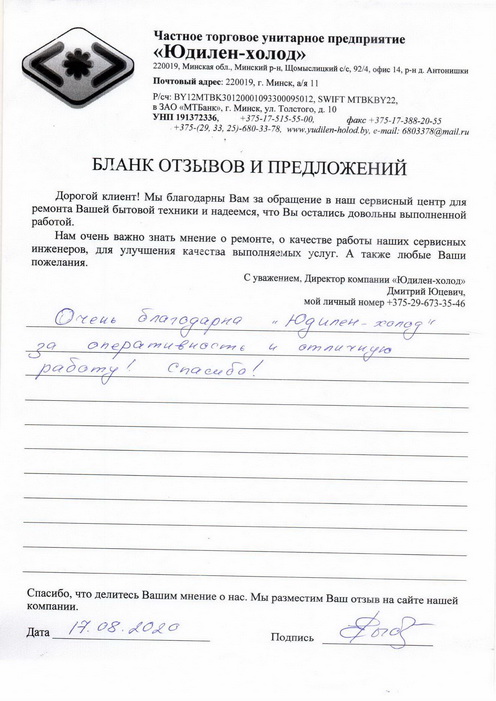 Частное торговое унитарное предприятие
«Юдилен-холод»
220019, Минская обл., Минский р-н, Щомыслицкий с/с, 92/4, офис 14, р-н д. Антонишки
Почтовый адрес: 220019, г. Минск, а/я 11
Р/сч: BY12MTBK30120001093300095012, SWIFT MTBKBY22,
в ЗАО «МТБанк», г. Минск, ул. Толстого, д. 10
УНП 191372336, +375-17-515-55-00, факс +375-17-388-20-55
+375-(29, 33, 25)-680-33-78, www.yudilen-holod.by, e-mail: 6803378@mail.ru
БЛАНК ОТЗЫВОВ И ПРЕДЛОЖЕНИЙ
Дорогой клиент! Мы благодарны Вам за обращение в наш сервисный центр для
ремонта Вашей бытовой техники и надеемся, что Вы остались довольны выполненной
работой.
Нам очень важно знать мнение о ремонте, о качестве работы наших сервисных
инженеров, для улучшения качества выполняемых услуг. А также любые Ваши
пожелания.
С уважением, Директор компании «Юдилен-холод»
Дмитрий Юцевич,
мой личный номер +375-29-673-35-46
Очень благодарна "Юдилен-холод"
за оперативность и отличную
работу! Спасибо!
Спасибо, что делитесь Вашим мнение о нас. Мы разместим Ваш отзыв на сайте нашей
компании.
Дата 17.08.2020 Подпись